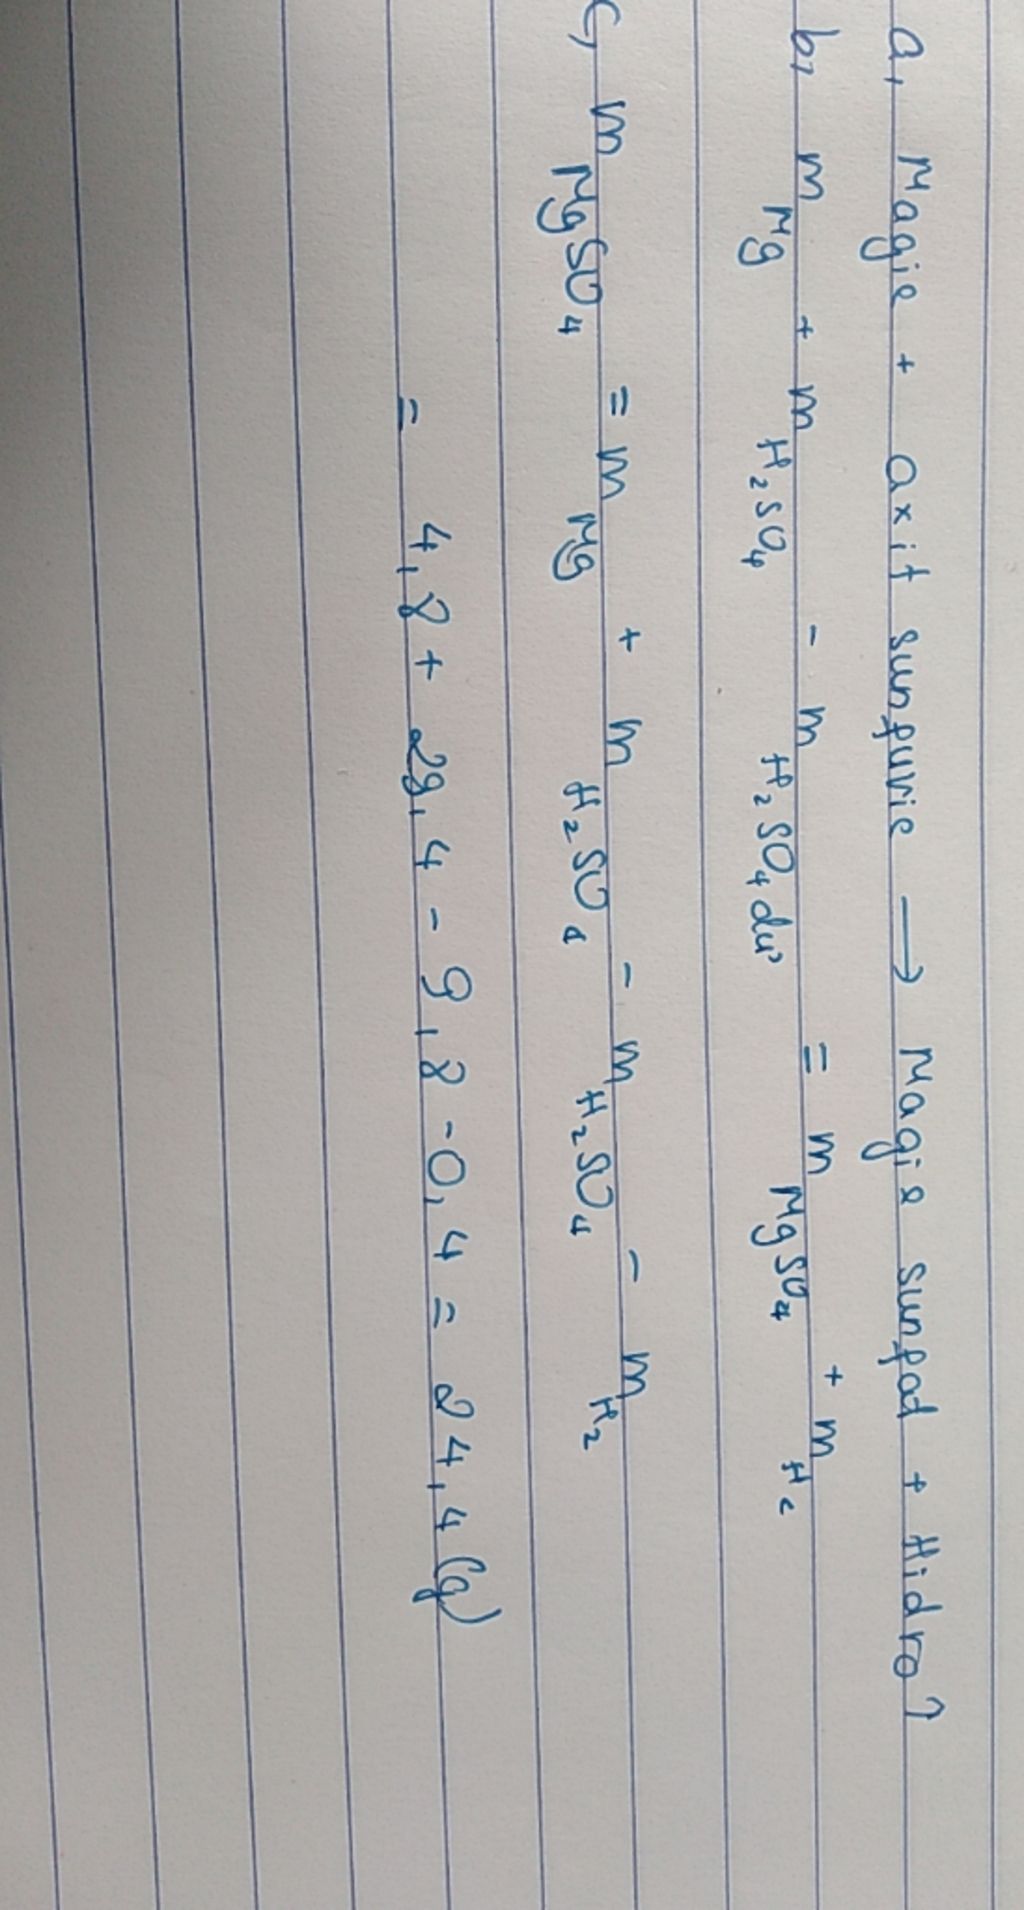 a, Magie + axit sunfuric → Magie sunfat + Hidro↑
b, m Mg + m H₂SO₄ - m H₂SO₄ dư = m MgSO₄ + m H₂
c, m MgSO₄ = m Mg + m H₂SO₄ - m H₂SO₄ - m H₂
= 4,8 + 29,4 - 9,8 - 0,4 = 24,4 (g)